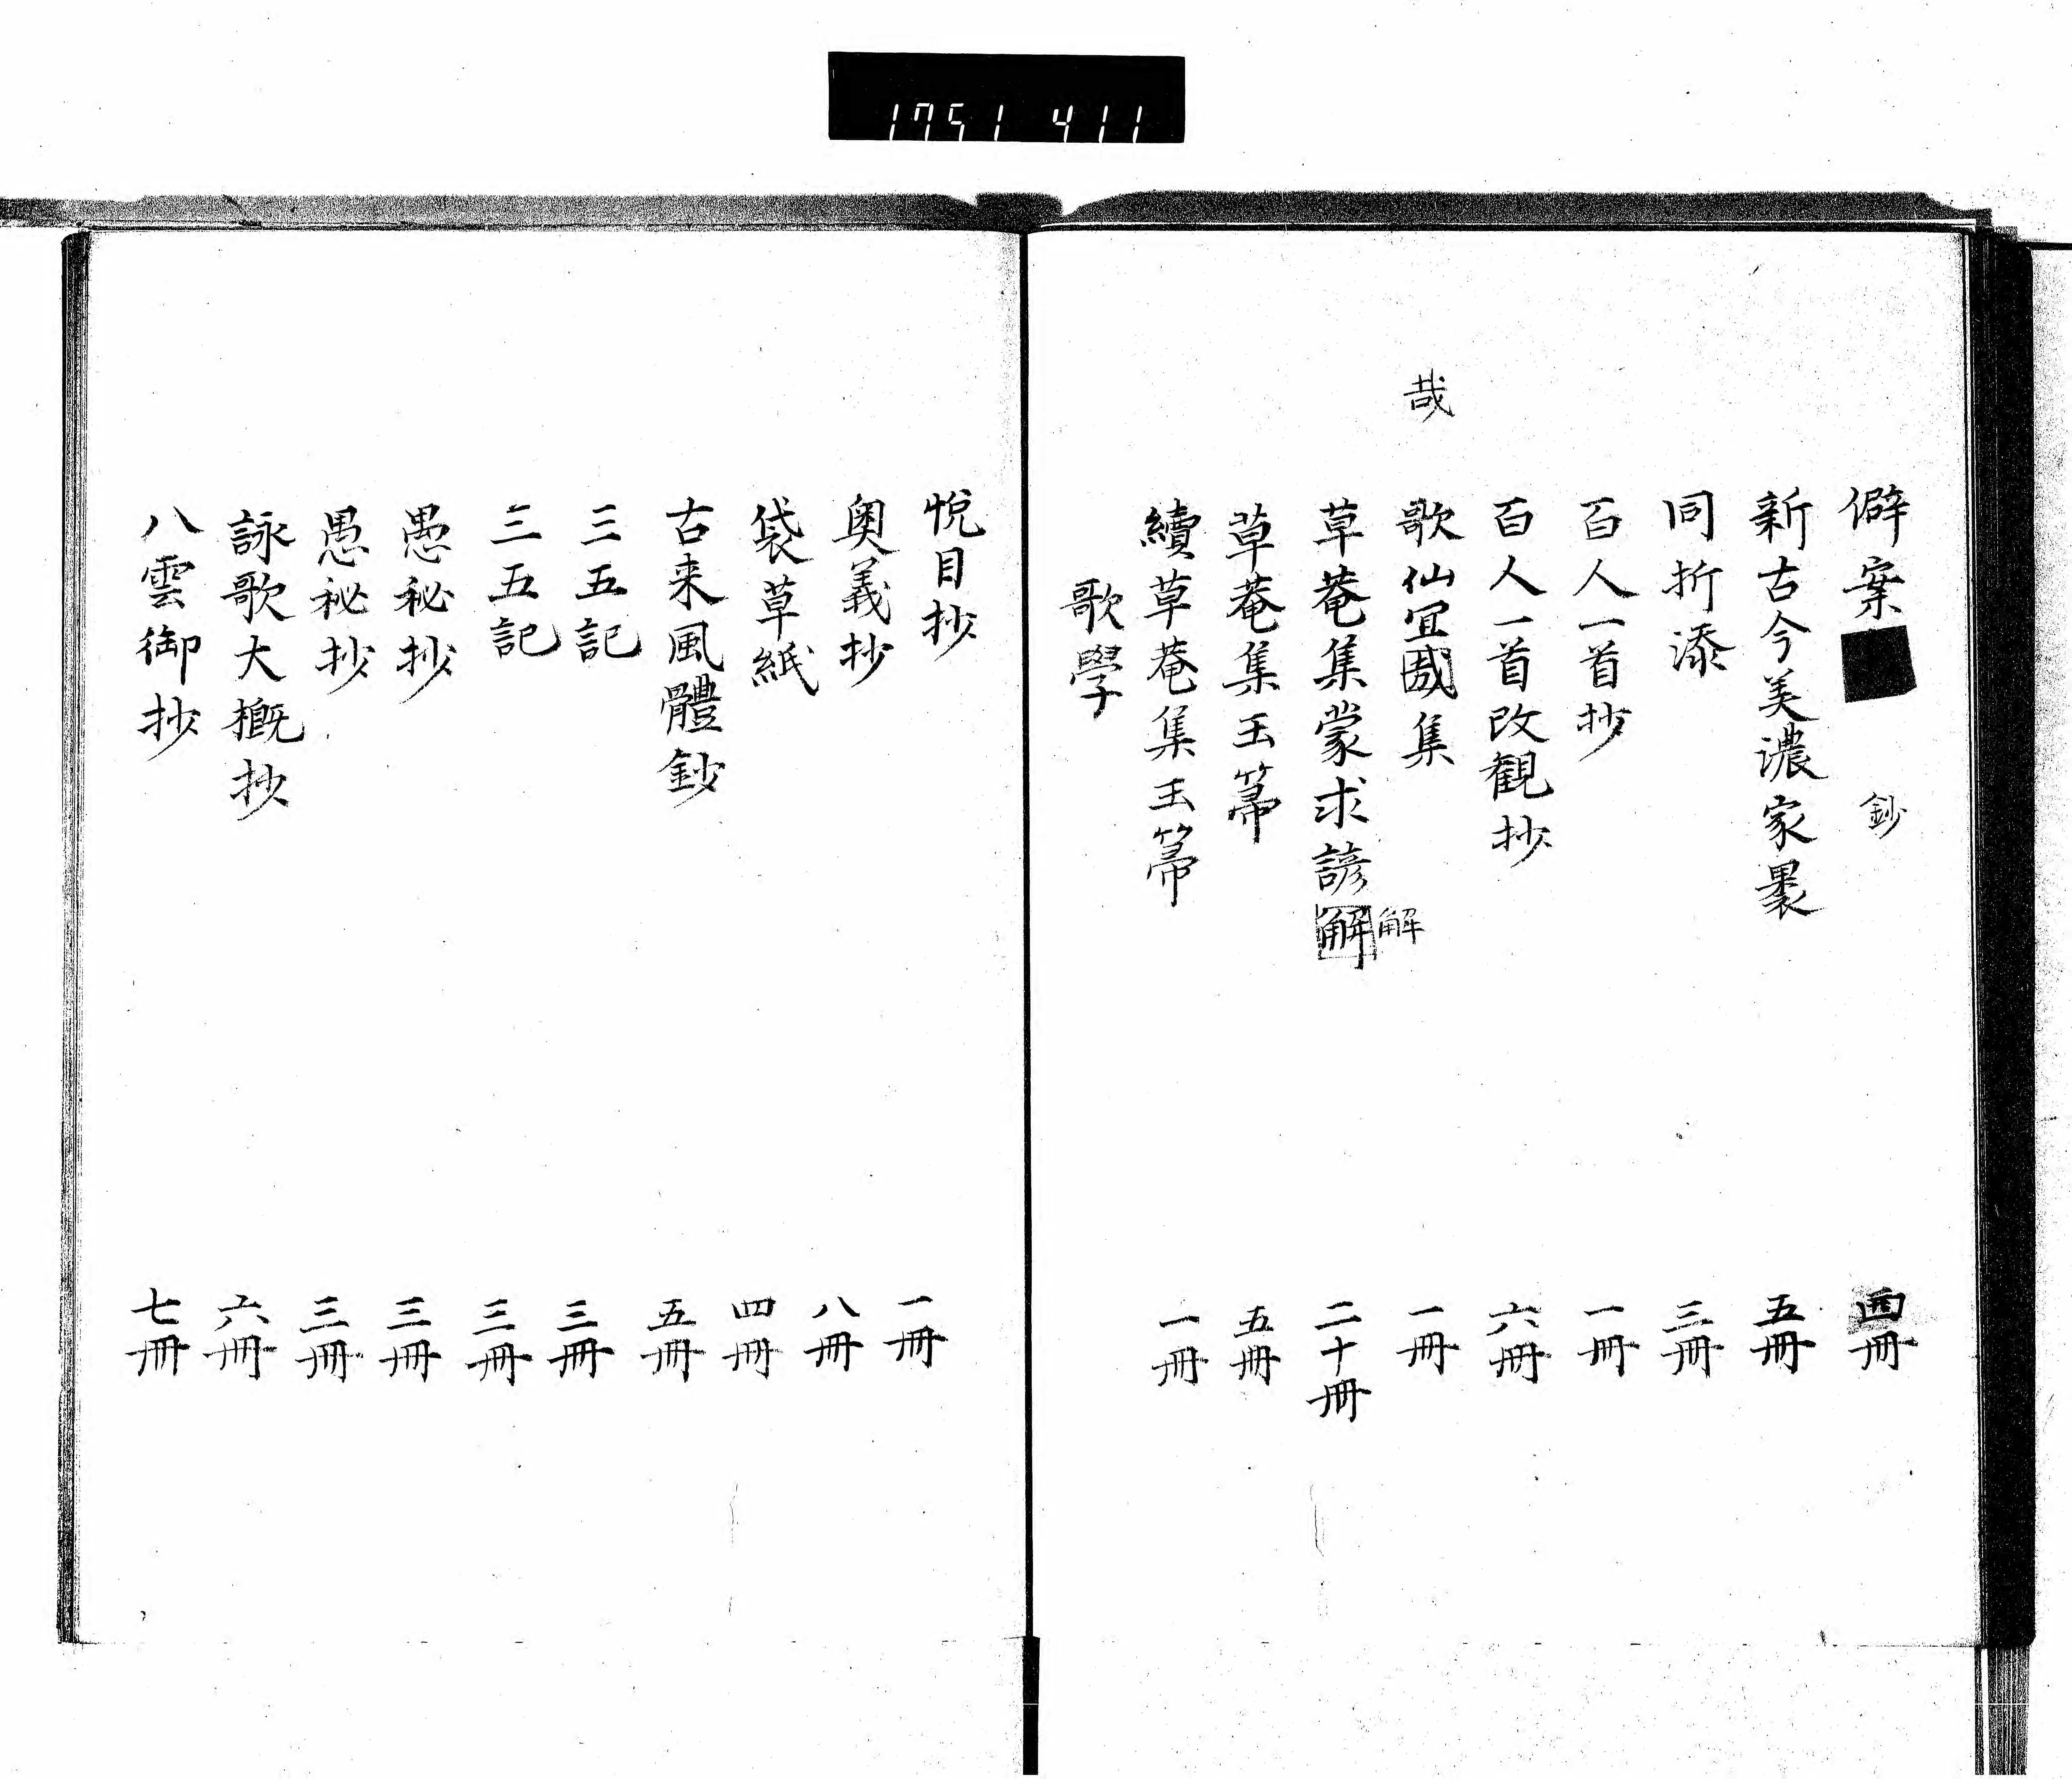 1751 411
僻案■鈔 四冊
新古今美濃家裹 五冊
同折添 三冊
百人一首抄 一冊
百人一首改観抄 六冊
哉
歌仙冝哉集 一冊
草菴集蒙求諺解 二十冊
解
草菴集玉箒 五冊
續草菴集玉箒 一冊
歌學
悅目抄 一冊
奥義抄 八冊
袋草紙 四冊
古来風體鈔 五冊
三五記 三冊
三五記 三冊
愚秘抄 三冊
愚祕抄 三冊
詠歌大概抄 六冊
八雲御抄 七冊